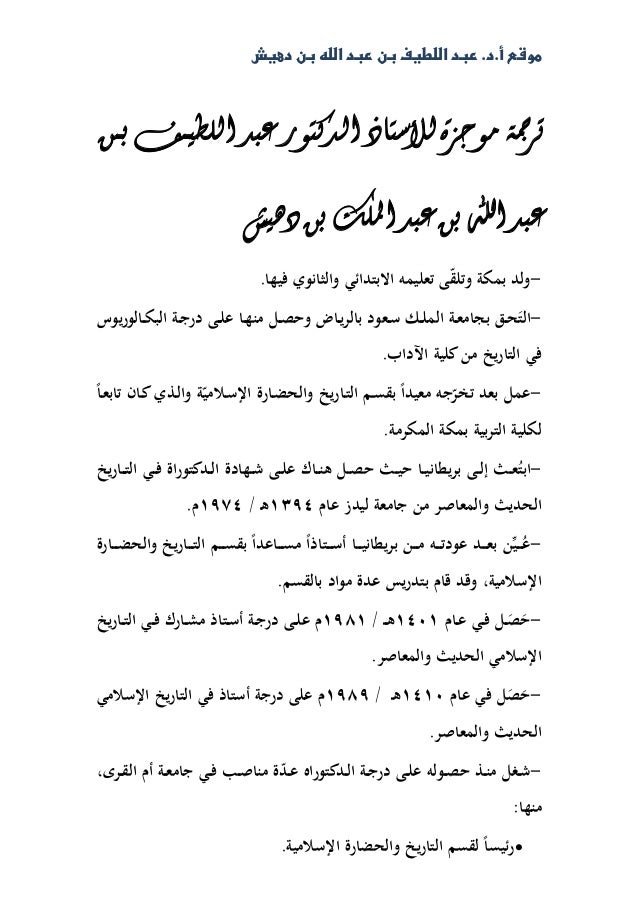 موقع أ.د. عبد اللطيف بن عبد الله بن دهيش
ترجمة موجزة للأستاذ الدكتور عبد اللطيف بن
عبد الله بن عبد الملك بن دهيش
-ولد بمكة وتلقّى تعليمه الابتدائي والثانوي فيها.
-التَحق بجامعة الملك سعود بالرياض وحصل منها على درجة البكالوريوس
في التاريخ من كلية الآداب.
-عمل بعد تخرّجه معيداً بقسم التاريخ والحضارة الإسلاميّة والذي كان تابعاً
لكلية التربية بمكة المكرمة.
-ابتُعث إلى بريطانيا حيث حصل هناك على شهادة الدكتوراة في التاريخ
الحديث والمعاصر من جامعة ليدز عام ١٣٩٤هـ / ١٩٧٤م.
-عُيِّن بعد عودته من بريطانيا أستاذاً مساعداً بقسم التاريخ والحضارة
الإسلامية، وقد قام بتدريس عدة مواد بالقسم.
-حَصَل في عام ١٤٠١هـ / ١٩٨١م على درجة أستاذ مشارك في التاريخ
الإسلامي الحديث والمعاصر.
-حَصَل في عام ١٤١٠هـ / ١٩٨٩م على درجة أستاذ في التاريخ الإسلامي
الحديث والمعاصر.
-شغل منذ حصوله على درجة الدكتوراه عدّة مناصب في جامعة أم القرى،
منها:
•رئيساً لقسم التاريخ والحضارة الإسلامية.